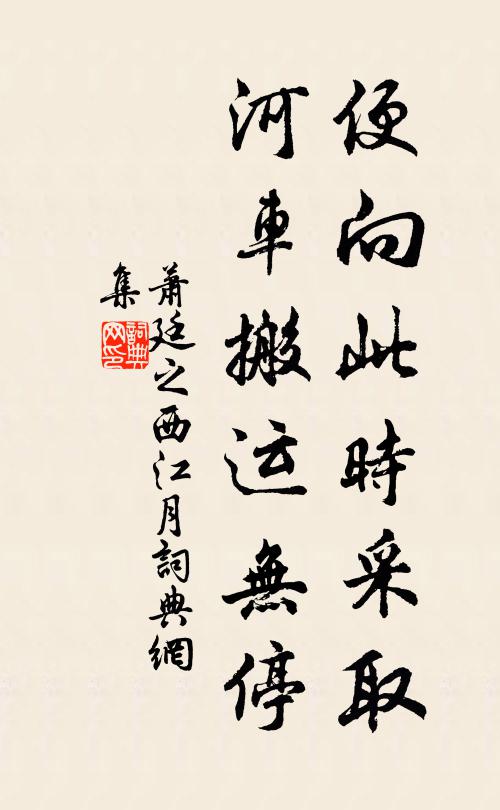 便向此時采取
河車搬运無停
蕭廷之西江月詞典網
集
詞典
网印